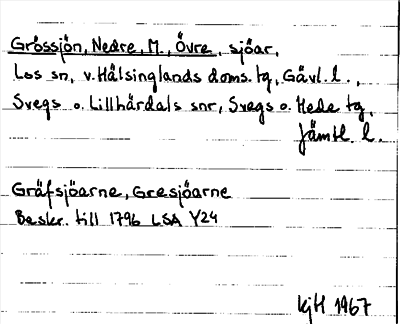 Grössjön, Nedre, M., Övre, sjöar,
Los sn, v. Hälsinglands doms. tg, Gävl. l.,
Svegs o. Lillhärdals snr, Svegs o. Hede tg,
Jämtl. l.
Gräfsjöarne, Gresjöarne
Beskr. till 1796 LSA Y24
KjH 1967